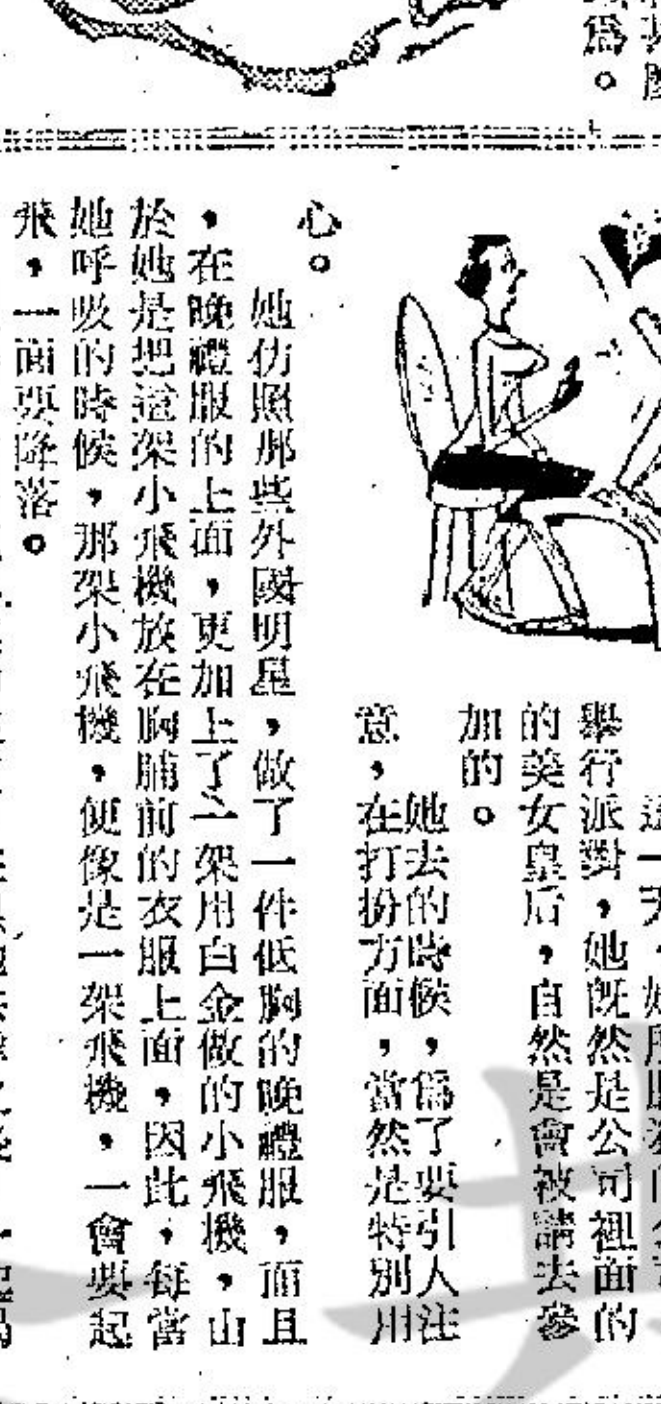 爲。
一天，
舉行派對，她既然是公司裡面的
的美女皇后，自然是會被請去參
加的。
她去的時候，爲了要引人注
意，在打扮方面，當然是特別用
心。
她仿照那些外國明星，做了一件低胸的晚禮服，而且
，在晚禮服的上面，更加上了一架用白金做的小飛機，由
於她是把這架小飛機放在胸脯前的衣服上面，因此，每當
她呼吸的時候，那架小飛機，便像是一架飛機，一會要起
飛，一面要降落。